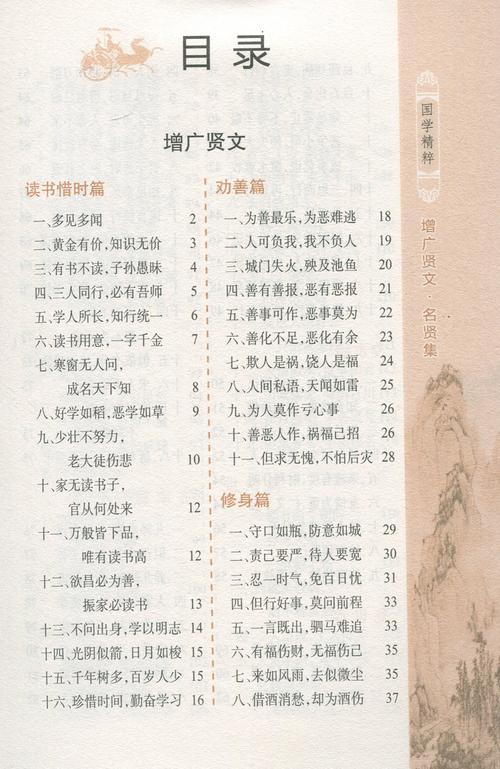 目录
增广贤文
读书惜时篇
一、多见多闻 2
二、黄金有价，知识无价 3
三、有书不读，子孙愚昧 4
四、三人同行，必有吾师 5
五、学人所长，知行统一 6
六、读书用意，一字千金 7
七、寒窗无人问，
成名天下知 8
八、好学如稻，恶学如草 9
九、少壮不努力，
老大徒伤悲 10
十、家无读书子，
官从何处来 12
十一、万般皆下品，
唯有读书高 12
十二、欲昌必为善，
振家必读书 13
十三、不问出身，学以明志 14
十四、光阴似箭，日月如梭 15
十五、千年树多，百岁人少 15
十六、珍惜时间，勤奋学习 16
劝善篇
一、为善最乐，为恶难逃 18
二、人可负我，我不负人 19
三、城门失火，殃及池鱼 20
四、善有善报，恶有恶报 21
五、善事可作，恶事莫为 22
六、善化不足，恶化有余 23
七、欺人是祸，饶人是福 24
八、人间私语，天闻如雷 25
九、为人莫作亏心事 26
十、善恶人作，祸福己招 26
十一、但求无愧，不怕后灾 28
修身篇
一、守口如瓶，防意如城 29
二、责己要严，待人要宽 30
三、忍一时气，免百日忧 31
四、但行好事，莫问前程 33
五、一言既出，驷马难追 33
六、有福伤财，无福伤己 35
七、来如风雨，去似微尘 35
八、借酒消愁，却为酒伤 37
国学精粹
增广贤文·名贤集